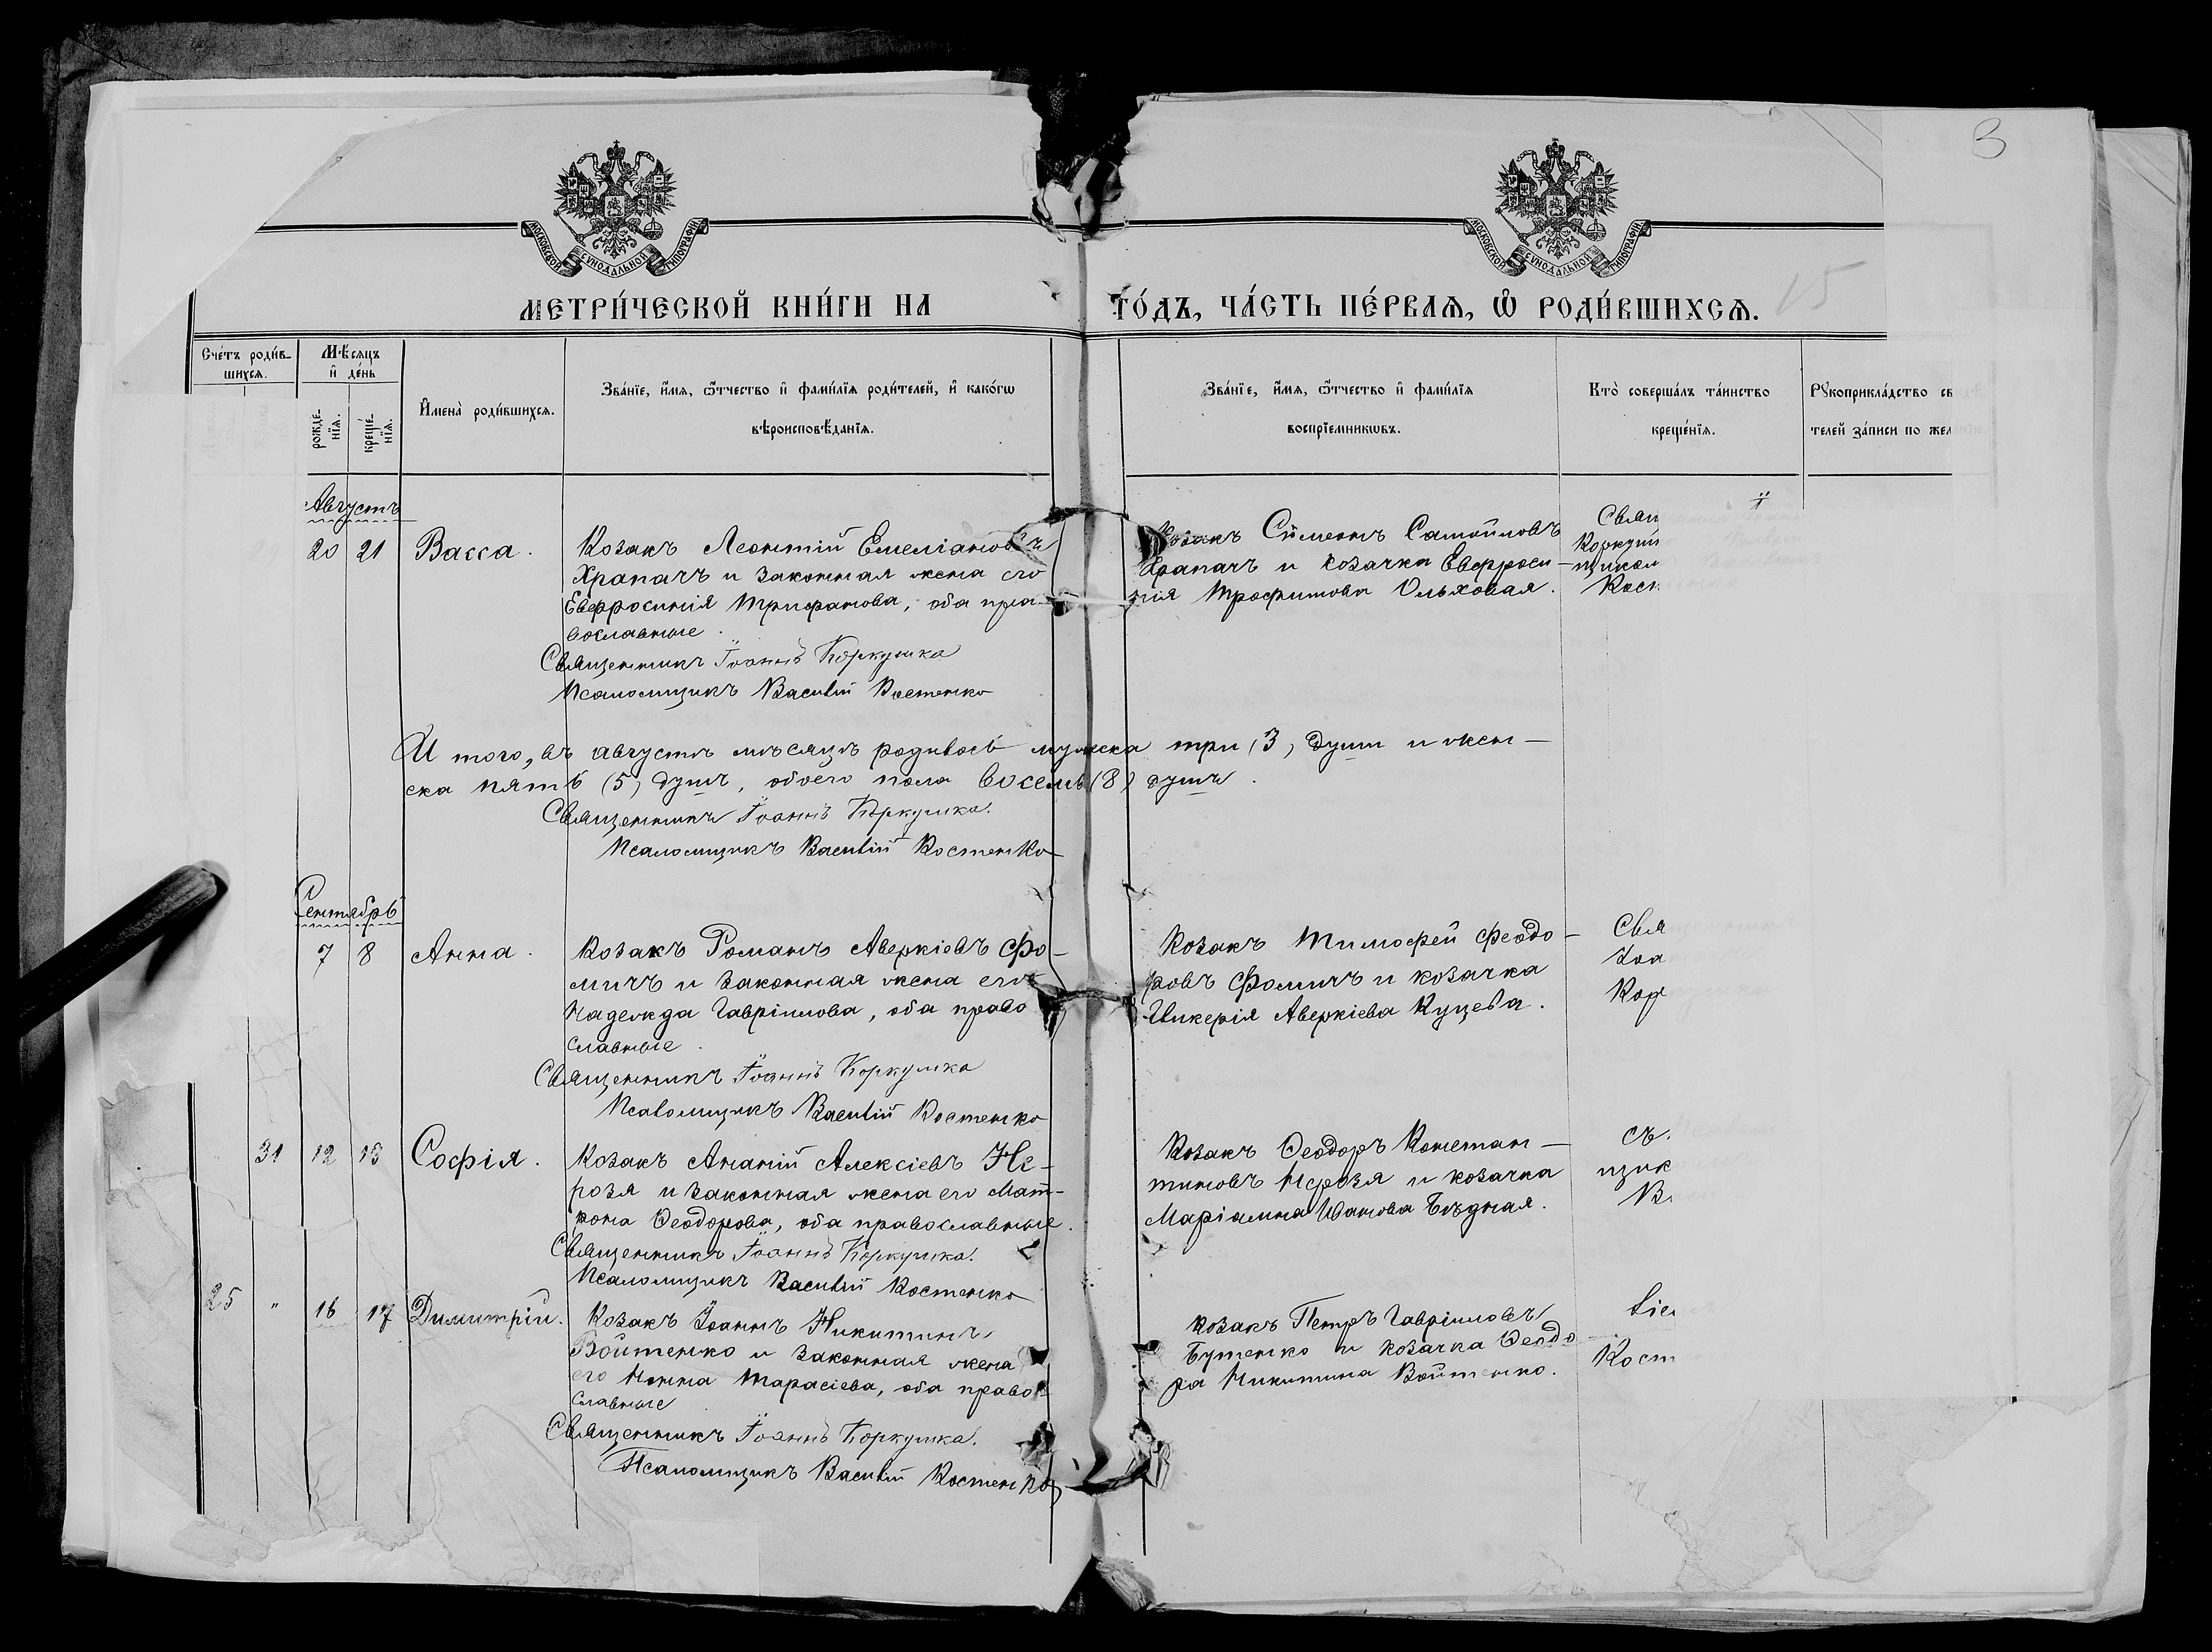 3
МОСКОВСКОЙ СУНОДАЛЬНОЙ ТИПОГРАФІИ
МОСКОВСКОЙ СУНОДАЛЬНОЙ ТИПОГРАФІИ
МЕТРИ́ЧЕСКОЙ КНИ́ГИ НА
ГО́ДЪ, ЧА́СТЬ ПЕ́РВАѦ, Ѽ РОДИ́ВШИХСѦ.
15
Сче́тъ роди́в-
шихсѧ.
Мѣ́сѧцъ
и҆ де́нь
рожде́-
нїѧ.
креще́-
нїѧ.
И҆мена̀ роди́вшихсѧ.
Зва́нїе, и҆́мѧ, ѻ҆́тчество и҆ фами́лїѧ роди́телей, и҆ како́гѡ
вѣроисповѣ́данїѧ.
Зва́нїе, и҆́мѧ, ѻ҆́тчество и҆ фами́лїѧ
воспрїе́мникѡвъ.
Кто̀ соверша́лъ та́инство
креще́нїѧ.
Рꙋкоприкла́дство св
телей за́писи по жел
Августъ
20 21 Васса.
Козакъ Леонтій Емеліановъ
Храпачъ и законная жена его
Евфросинія Трифанова, оба пра-
вославные.
Священникъ Іоаннъ Коркушка
Псаломщикъ Василій Костенко
Козакъ Сѵмеонъ Самойловъ
Храпачъ и козачка Евфроси-
нія Трофимова Ольховая.
Свящ
Коркуш
щиком
Кост
И того, въ августѣ мѣсяцѣ родилось мужска три (3) души и жен-
ска пять (5) душъ, обоего пола восемь (8) душъ.
Священникъ Іоаннъ Коркушка.
Псаломщикъ Василій Костенко
Сентябрь
7 8 Анна.
Козакъ Романъ Аверкіевъ Фо-
мичъ и законная жена его
Надежда Гавріилова, оба право
славные.
Священникъ Іоаннъ Коркушка
Псаломщикъ Василій Костенко
Козакъ Тимофей Феодо-
ровъ Фомичъ и козачка
Гликерія Аверкіева Куцева.
Свя
Іоа
Кор
31 12 13 Софія.
Козакъ Ананій Алексіевъ Не-
розя и законная жена его Мат-
рона Ѳеодорова, оба православные.
Священникъ Іоаннъ Коркушка.
Псаломщикъ Василій Костенко
Козакъ Ѳеодоръ Констан-
тиновъ Нерозя и козачка
Маріамна Иванова Бѣдная.
съ.
щик
В
25 " 16 17 Димитрій.
Козакъ Іоаннъ Никитинъ
Войтенко и законная жена
его Нонна Тарасіева, оба право-
славные
Священникъ Іоаннъ Коркушка.
Псаломщикъ Василій Костенко
Козакъ Петръ Гавріиловъ
Бутенко и козачка Ѳеодо-
ра Никитина Войтенко.
Кост